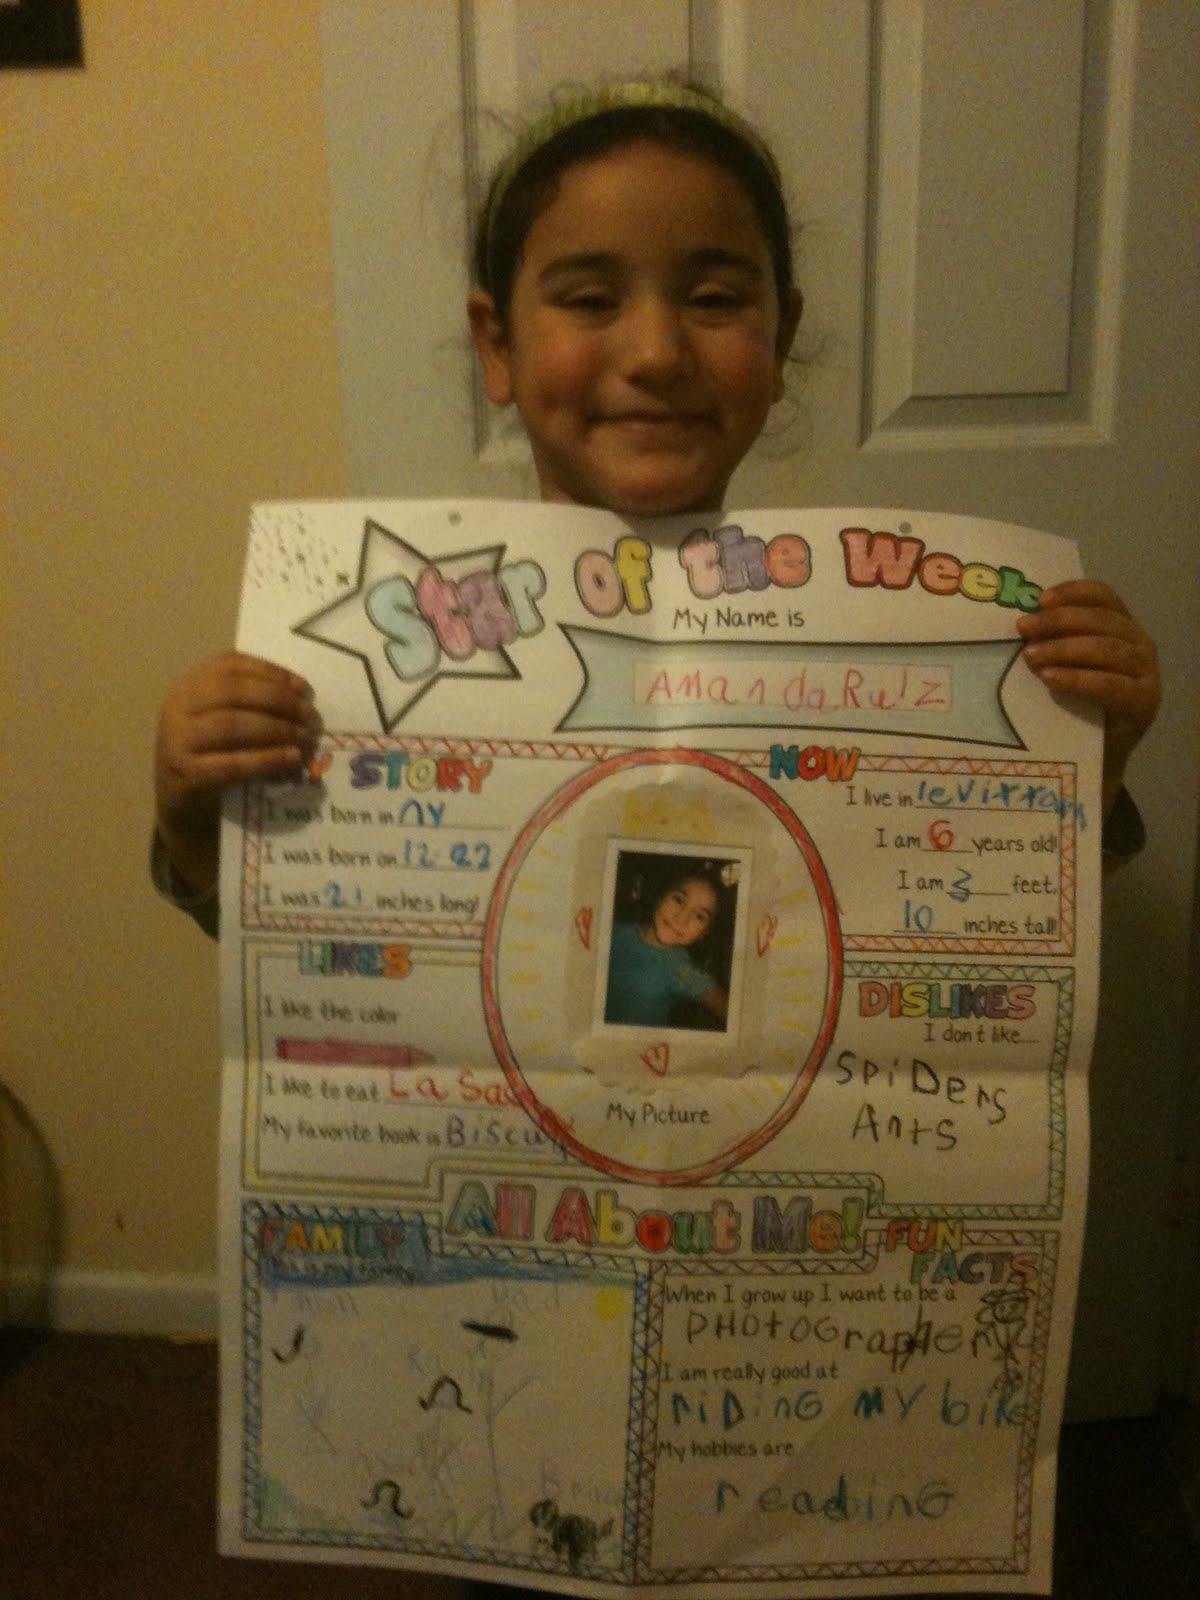 Star of the Week
My Name is
AMandaRuiz
MY STORY
I was born in NY
I was born on 12-22
I was 21 inches long!
NOW
I live in levittown
I am 6 years old!
I am 3 feet,
10 inches tall!
LIKES
I like the color
I like to eat
My favorite book is Biscuit
My Picture
DISLIKES
I don't like...
SpiDers
Ants
All About Me!
FAMILY
This is my family.
Mom
Dad
FUN FACTS
When I grow up I want to be a
PHOtOGrapher
I am really good at
riDinG MY bike
My hobbies are
readinG